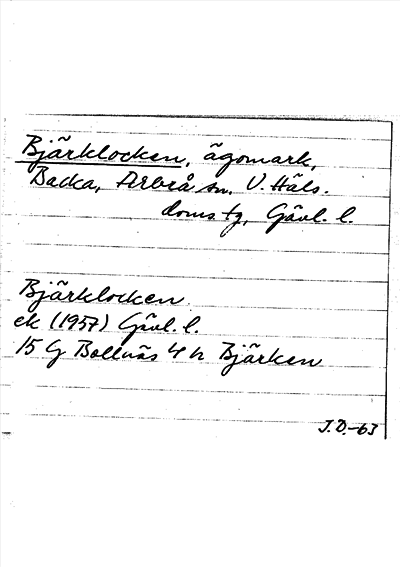 Bjärklocken, ägomark,
Backa, Arbrå sn. V. Häls.
doms. tg, Gävl. l.
Bjärklocken
ek (1957) Gävl. l.
15 G Bollnäs 4 h Bjärken
J.D.-63